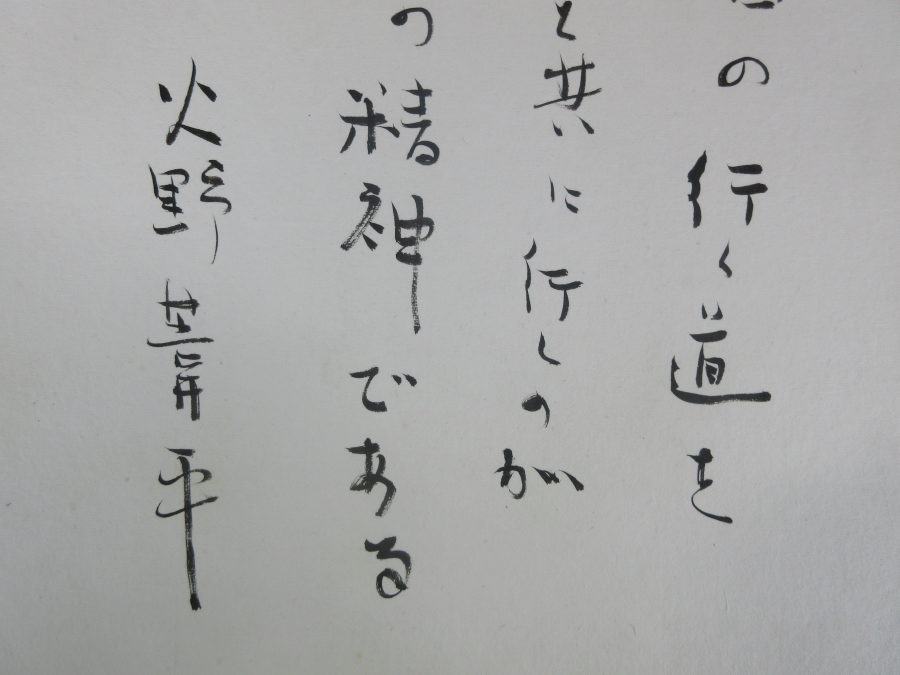 の行く道を
と共に行くのが
の精神である
火野葦平